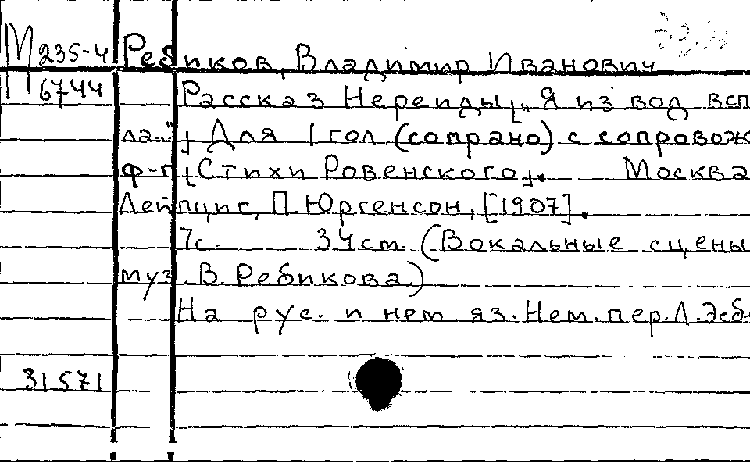 М 235-4 Ребиков, Владимир Иванович
П 6744 Рассказ Нереиды „Я из вод всп
ла..." Для 1 гол (сопрано) с сопровож
ф-п Стихи Ровенского. Москва
Лейпциг, П. Юргенсон, [1907].
7с. 34см. (Вокальные сцены
муз. В. Ребикова)
На рус. и нем яз. Нем. пер. Л. Эсб
31571